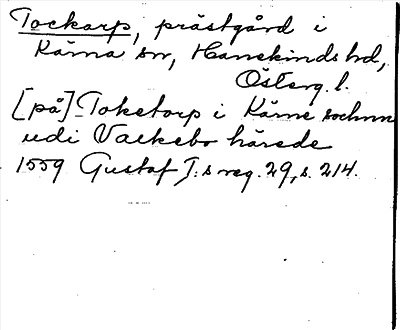 Tockarp, prästgård i
Kärna sn, Hanekinds hd,
Österg. l.
[på] Toketorp i Kärne sochnn
udi Valkebo härede
1559 Gustaf I:s reg. 29, s. 214.